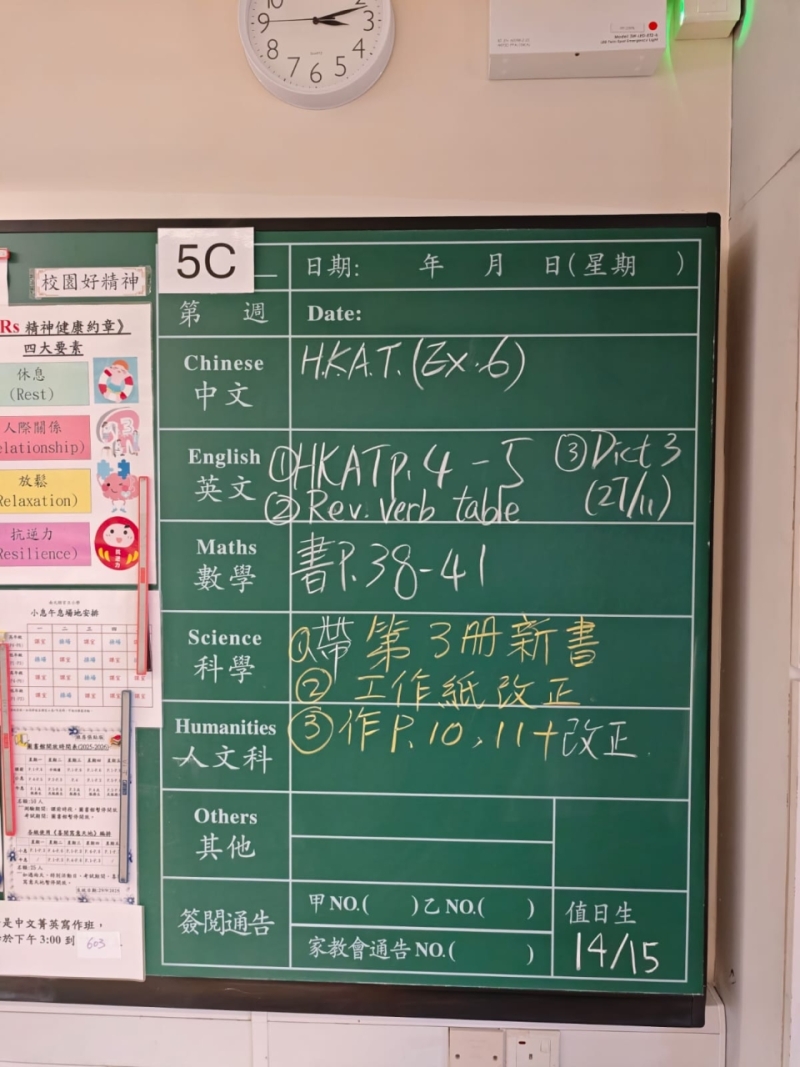 10
2
9
3
8
4
7
6
5
QUARTZ
5C
日期: 年 月 日(星期 )
第 週
Date:
Chinese
中文
H.K.A.T. (Ex. 6)
English
英文
① HKAT p. 4 - 5
② Rev. verb table
③ Dict 3
(27/11)
Maths
數學
書P.38-41
Science
科學
①帶第3冊新書
② 工作紙改正
③作P.10,11+改正
Humanities
人文科
Others
其他
簽閱通告
甲NO.( )乙NO.( )
家教會通告NO.( )
值日生
14/15
校園好精神
Rs 精神健康約章》
四大要素
休息
(Rest)
人際關係
elationship)
放鬆
Relaxation)
抗逆力
Resilience)
小息午息場地安排
圖書館開放時間表(2025-2026)
是中文菁英寫作班,
於下午 3:00 到 603